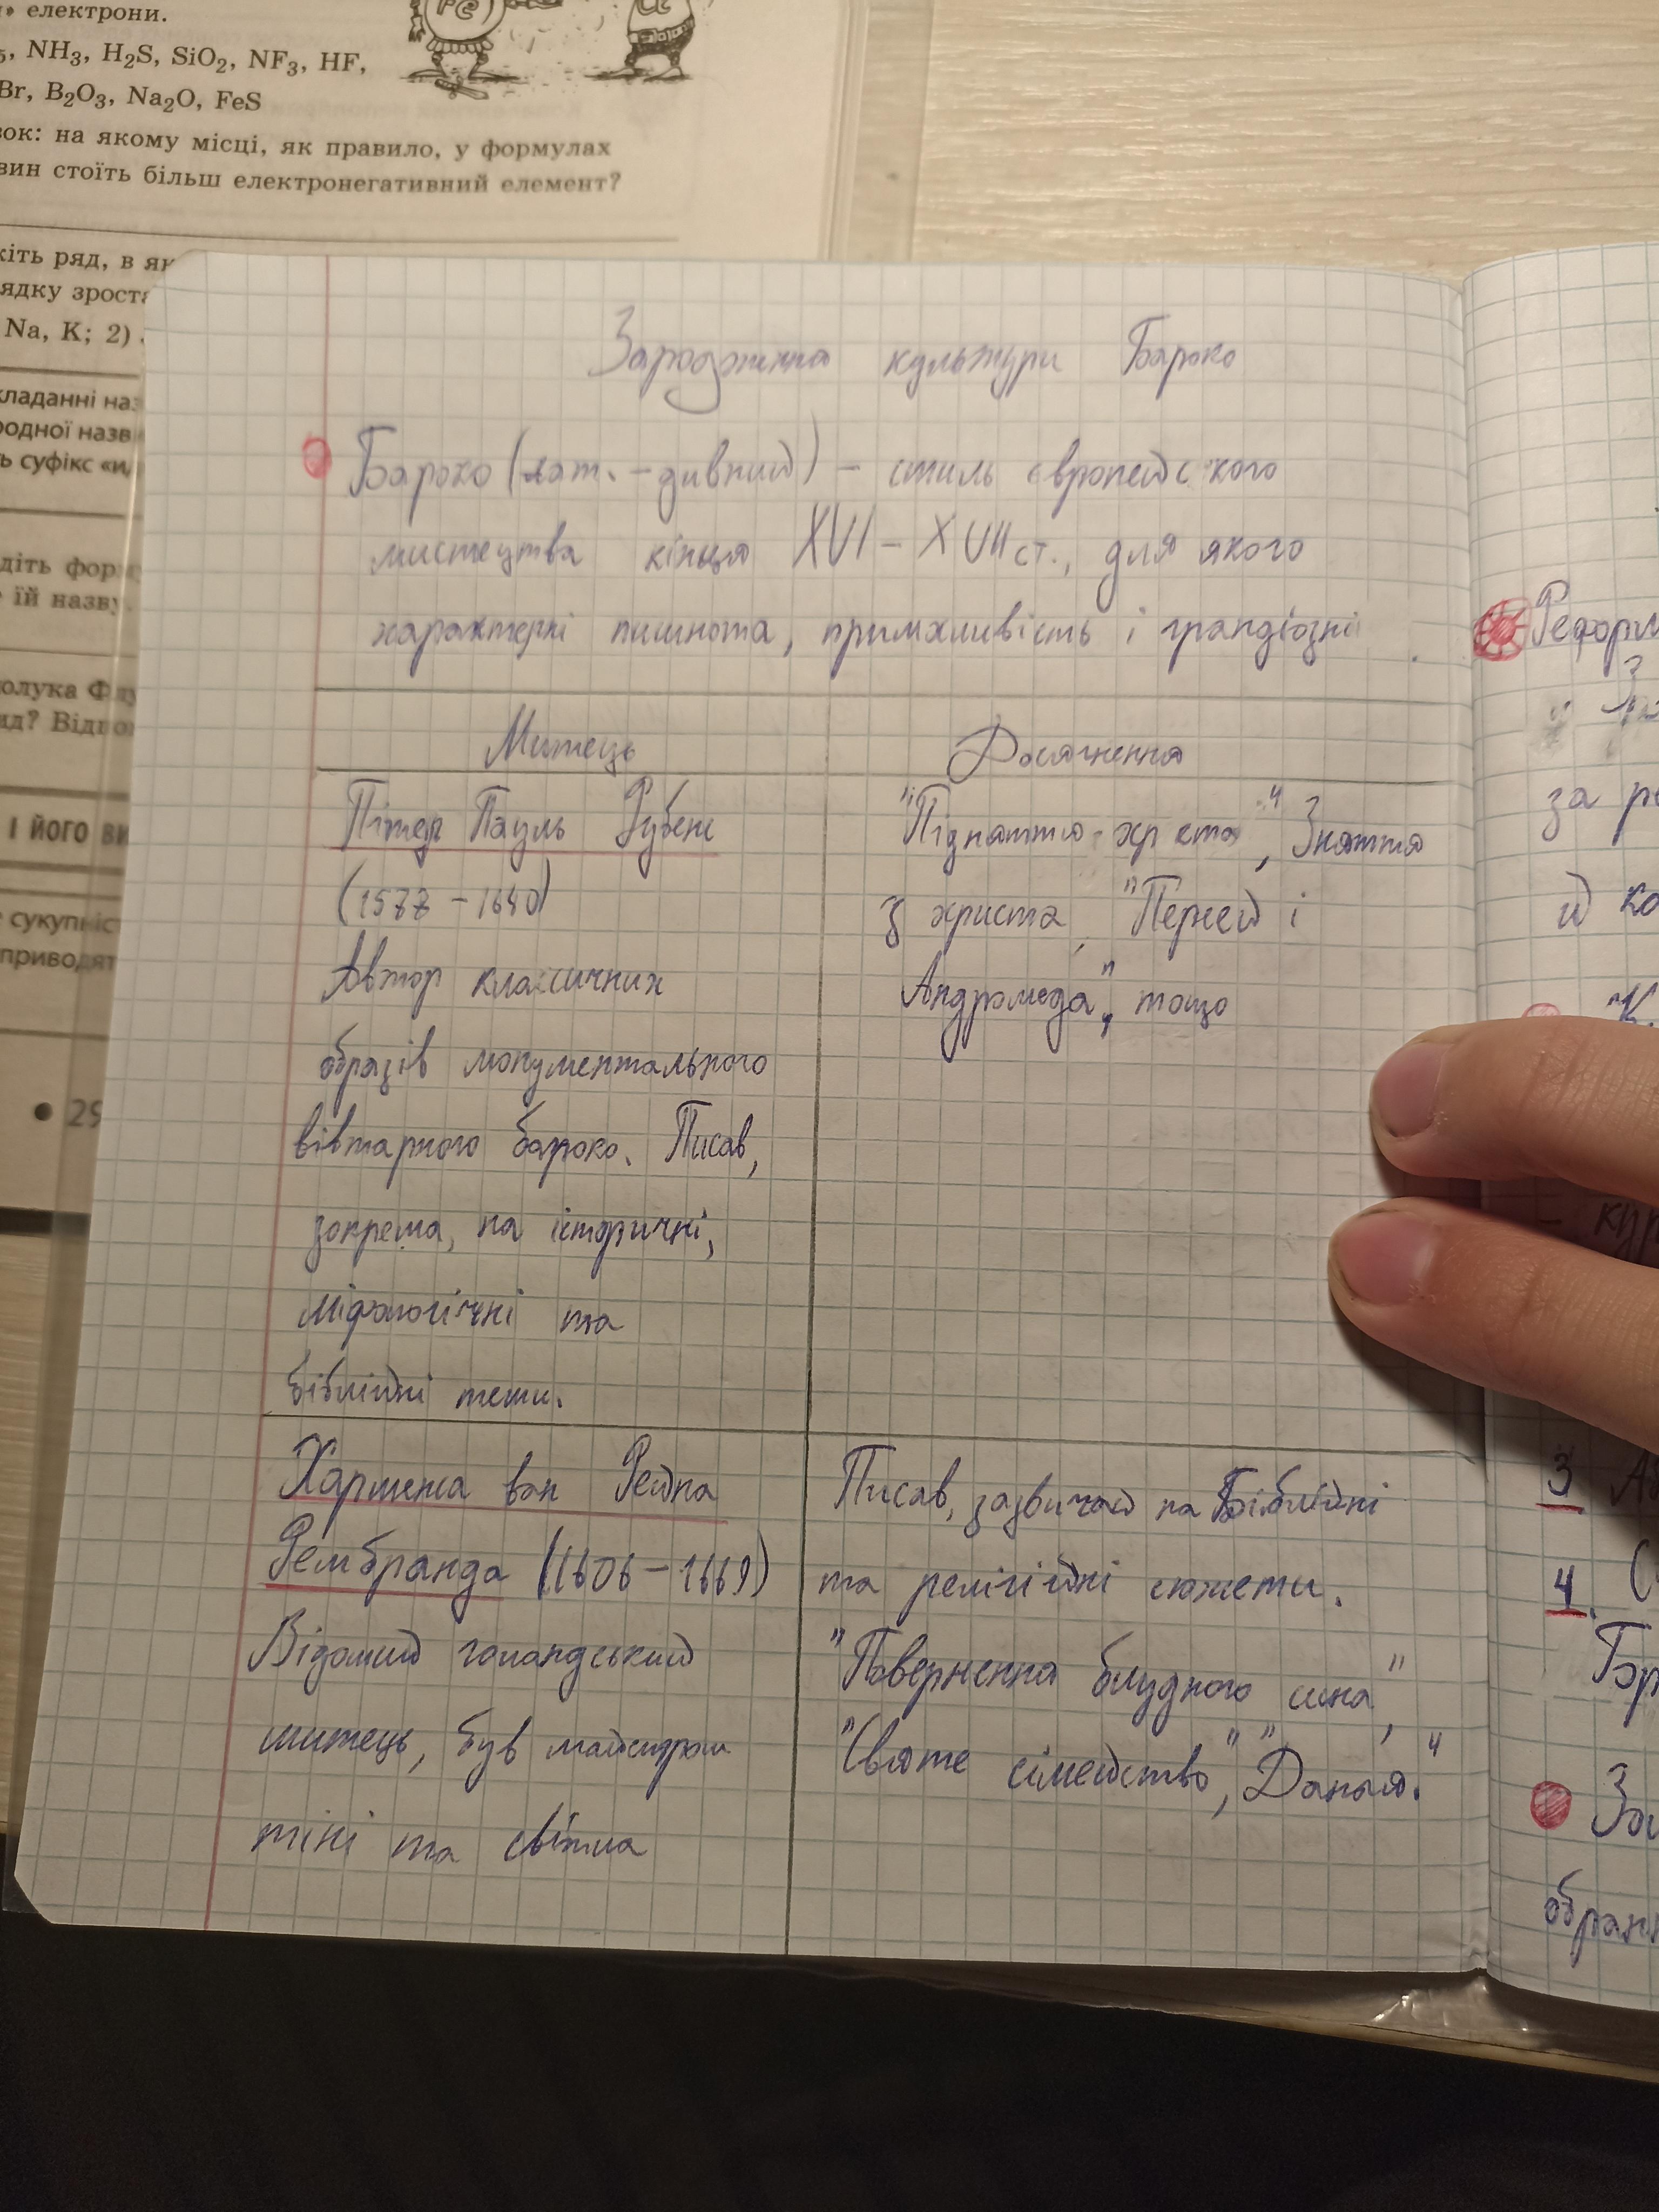 » електрони.
NH₃, H₂S, SiO₂, NF₃, HF,
Br, B₂O₃, Na₂O, FeS
на якому місці, як правило, у формулах
стоїть більш електронегативний елемент?
ряд, в як
Na, K; 2)
кладанні
суфікс «и
їй назву.
І ЙОГО
• 29
Зародження культури Бароко
Бароко (лат. – дивний) – стиль європейського
мистецтва кінця XVI – XVII ст., для якого
характерні пишнота, примхливість і грандіозні
Митець
Досягнення
Пітер Пауль Рубенс
(1577 – 1640)
Автор класичних
образів монументального
вівтарного бароко. Писав,
зокрема, на історичні,
міфологічні та
біблійні теми.
"Підняття хреста", Зняття
з христа, "Персей і
Андромеда", тощо
Харменса ван Рейна
Рембранда (1606 – 1669)
Відомий голандський
митець, був майстром
тіні та світла
Писав, зазвичай на Біблійні
та релігійні сюжети.
"Повернення блудного сина",
"Святе сімейство", "Даная."
Реформ
за
й
3
4.